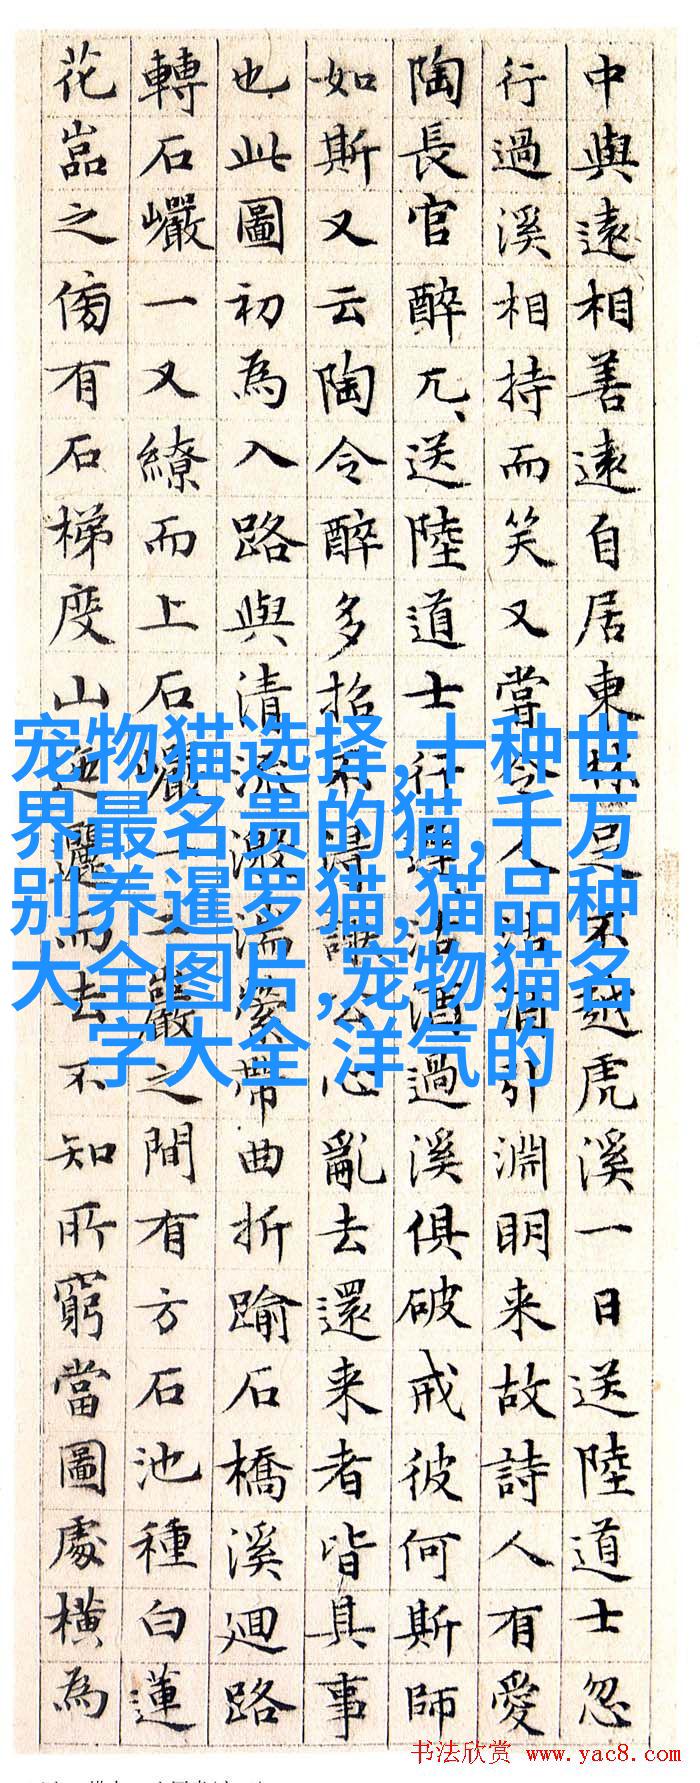 中與遠相善遠自居東林足不越虎溪一日送陸道士忽
行過溪相持而笑又嘗令人沽酒引淵明来故詩人有愛
陶長官醉兀、送陸道士行遲、沽酒過溪俱破戒彼何斯師
如斯又云陶令醉多招不得謝公心亂去還来者皆其事
也此圖初為入路與清流激湍縈帶曲折踰石橋溪廻路
轉石巖一又繚而上石巖之間有方石池種白蓮
花嵓之傍有石梯度山迤邐而去不知所窮當圖處横為
宠物猫选择,十种世
界最名贵的猫,千万
别养暹罗猫,猫品种
大全图片,宠物猫名
字大全 洋气的
书法欣赏 www.yac8.com